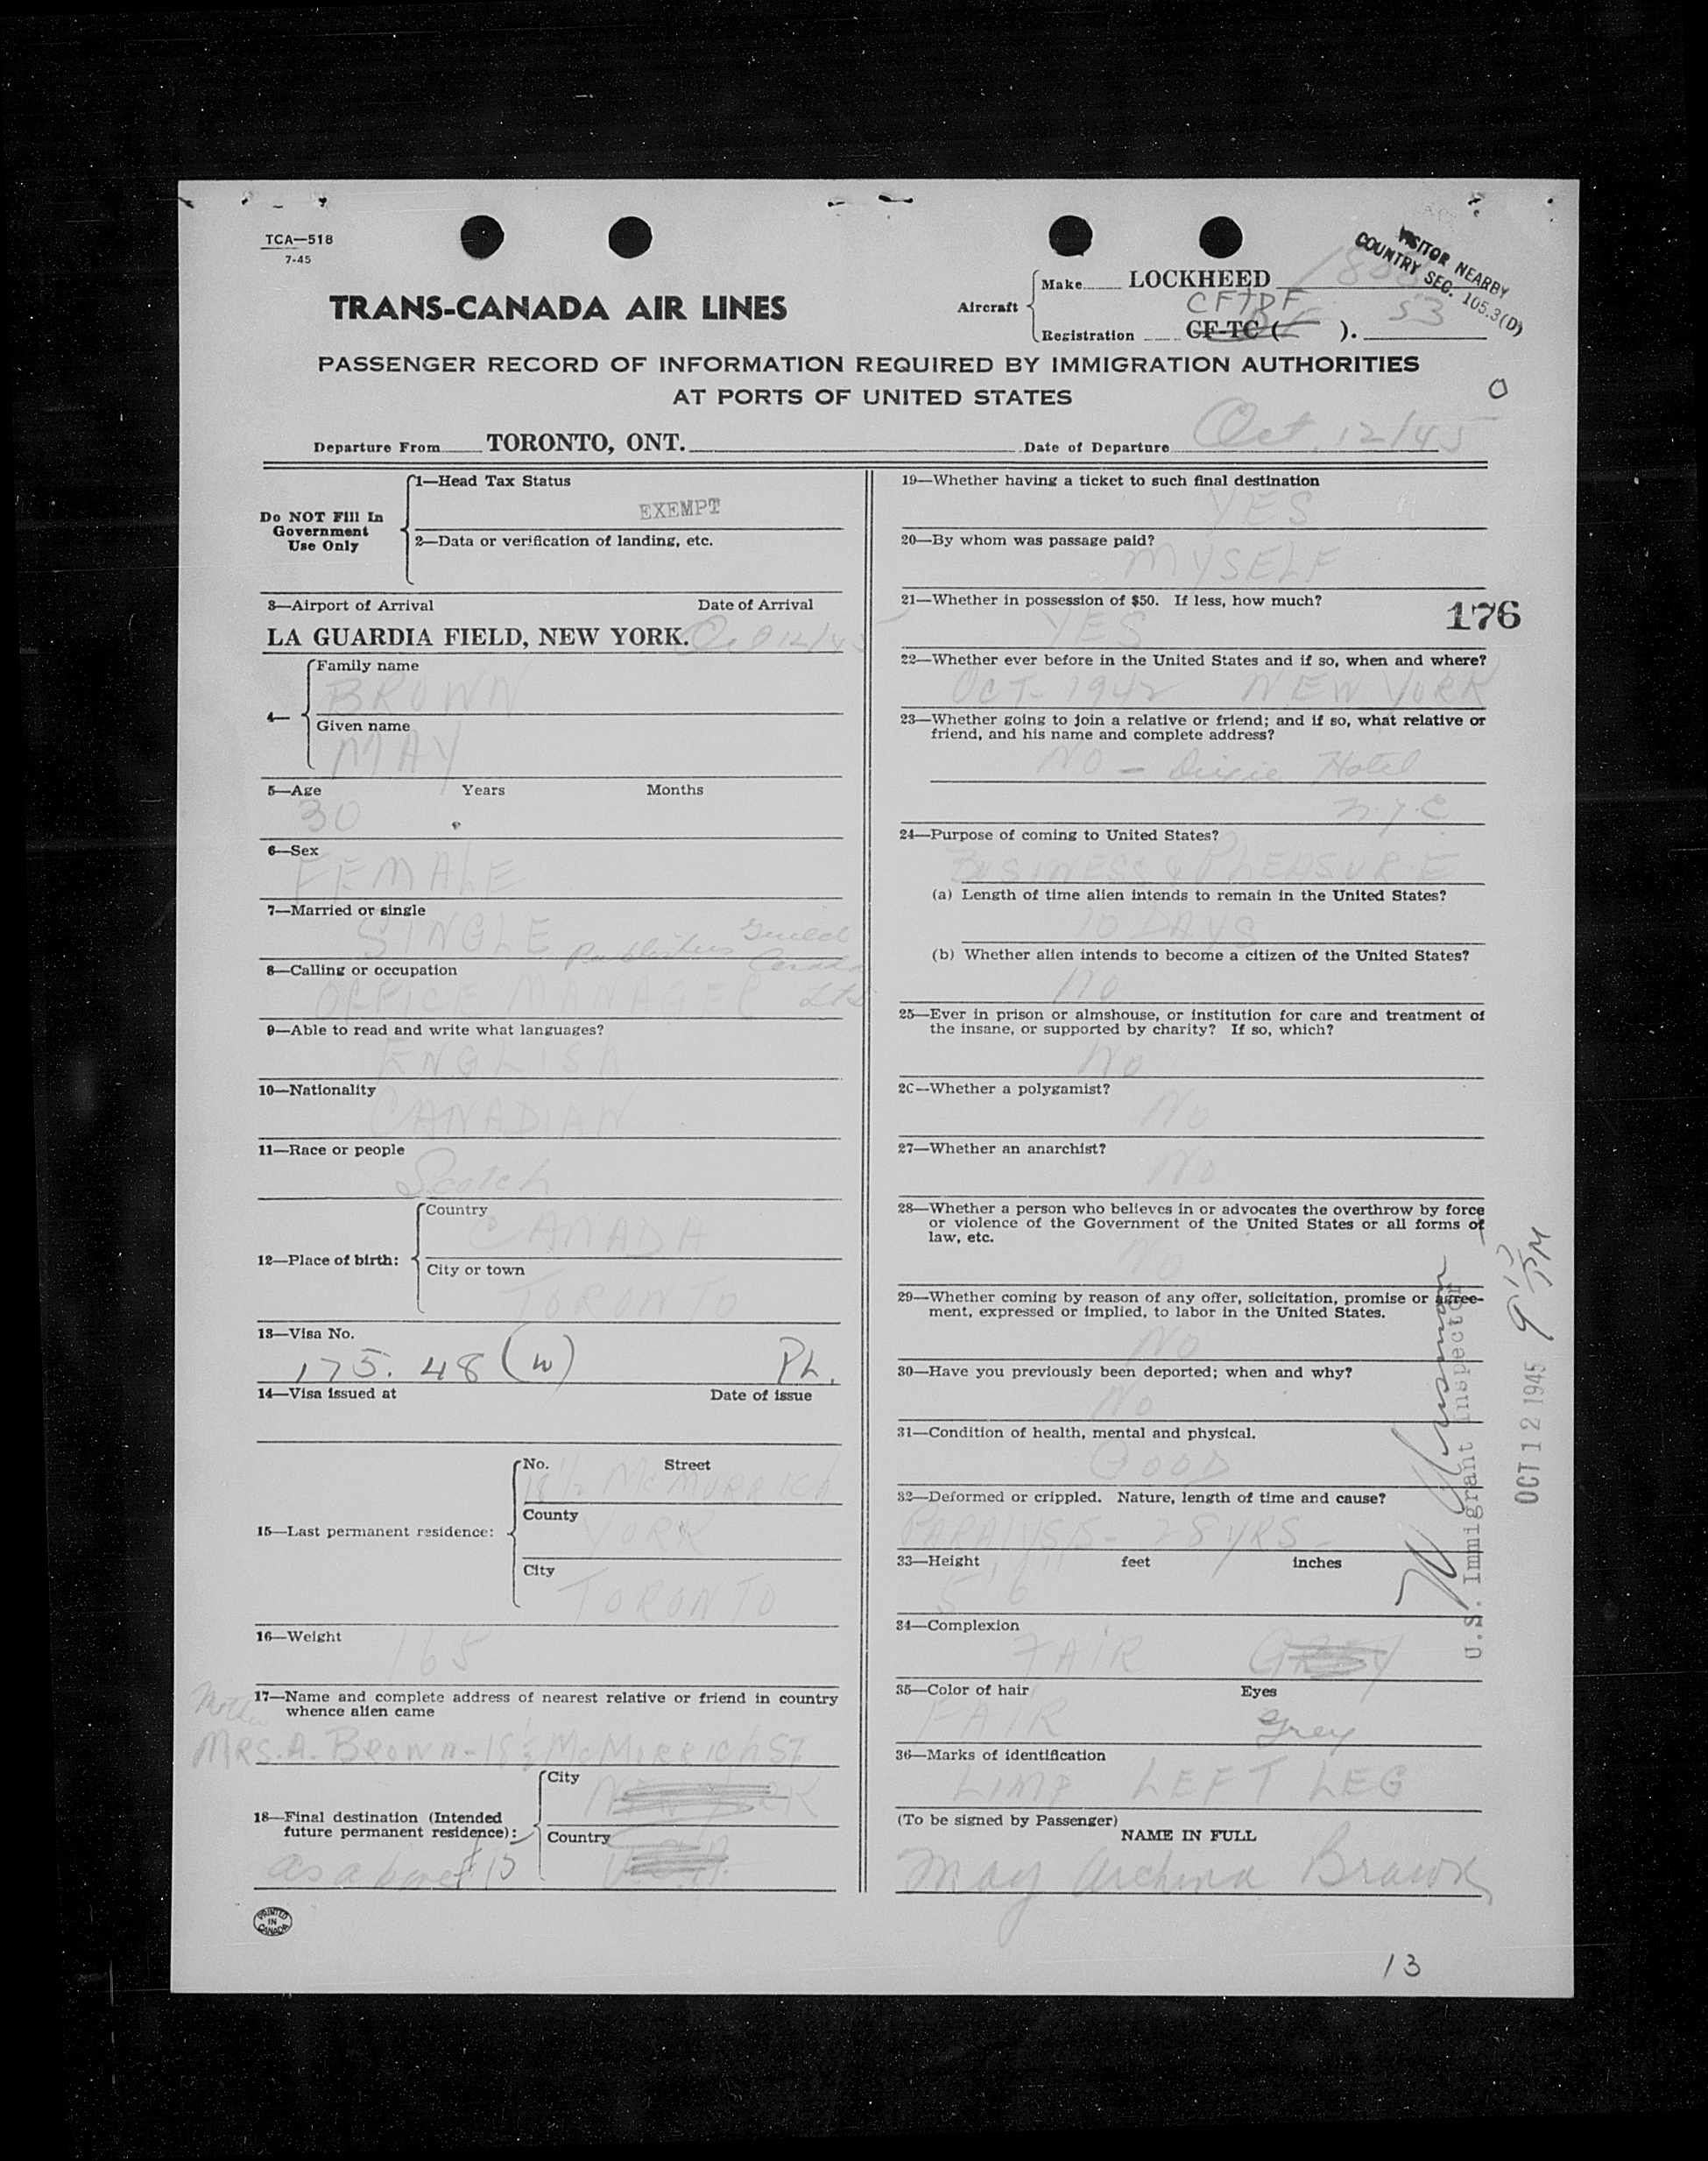 TCA—518
7-45
VISITOR NEARBY
COUNTRY SEC. 105.3(D)
TRANS-CANADA AIR LINES
Aircraft
Make LOCKHEED
CFTDF
Registration CF-TC ( ).
53
PASSENGER RECORD OF INFORMATION REQUIRED BY IMMIGRATION AUTHORITIES
AT PORTS OF UNITED STATES
Departure From TORONTO, ONT. Date of Departure Oct. 12/45
Do NOT Fill In
Government
Use Only
1—Head Tax Status
EXEMPT
2—Data or verification of landing, etc.
3—Airport of Arrival Date of Arrival
LA GUARDIA FIELD, NEW YORK. Oct 12/45
4—
Family name
BROWN
Given name
MAY
5—Age Years Months
30
6—Sex
FEMALE
7—Married or single
SINGLE
Publishers Guild
Canada
8—Calling or occupation
OFFICE MANAGER Ltd
9—Able to read and write what languages?
ENGLISH
10—Nationality
CANADIAN
11—Race or people
Scotch
12—Place of birth:
Country
CANADA
City or town
TORONTO
13—Visa No.
175.48 (W) PL.
14—Visa issued at Date of issue
15—Last permanent residence:
No. Street
18½ McMURRICH
County
YORK
City
TORONTO
16—Weight
165
17—Name and complete address of nearest relative or friend in country
whence alien came
Mother
MRS. A. BROWN - 18½ McMURRICH ST
18—Final destination (Intended
future permanent residence):
City
NEW YORK
Country
U.S.A.
as above
PRINTED
IN
CANADA
19—Whether having a ticket to such final destination
YES
20—By whom was passage paid?
MYSELF
21—Whether in possession of $50. If less, how much?
YES
176
22—Whether ever before in the United States and if so, when and where?
OCT- 1942 NEW YORK
23—Whether going to join a relative or friend; and if so, what relative or
friend, and his name and complete address?
NO - Dixie Hotel
N.Y.C
24—Purpose of coming to United States?
BUSINESS & PLEASURE
(a) Length of time alien intends to remain in the United States?
10 DAYS
(b) Whether alien intends to become a citizen of the United States?
NO
25—Ever in prison or almshouse, or institution for care and treatment of
the insane, or supported by charity? If so, which?
NO
26—Whether a polygamist?
NO
27—Whether an anarchist?
NO
28—Whether a person who believes in or advocates the overthrow by force
or violence of the Government of the United States or all forms of
law, etc.
NO
29—Whether coming by reason of any offer, solicitation, promise or agree-
ment, expressed or implied, to labor in the United States.
NO
30—Have you previously been deported; when and why?
NO
31—Condition of health, mental and physical.
GOOD
32—Deformed or crippled. Nature, length of time and cause?
PARALYSIS - 28 YRS
33—Height feet inches
5' 6"
34—Complexion
FAIR GREY
35—Color of hair Eyes
FAIR Grey
36—Marks of identification
LIMP LEFT LEG
(To be signed by Passenger)
NAME IN FULL
May Archina Brown
U.S. Immigrant Inspector
OCT 12 1945 9 15 PM
13